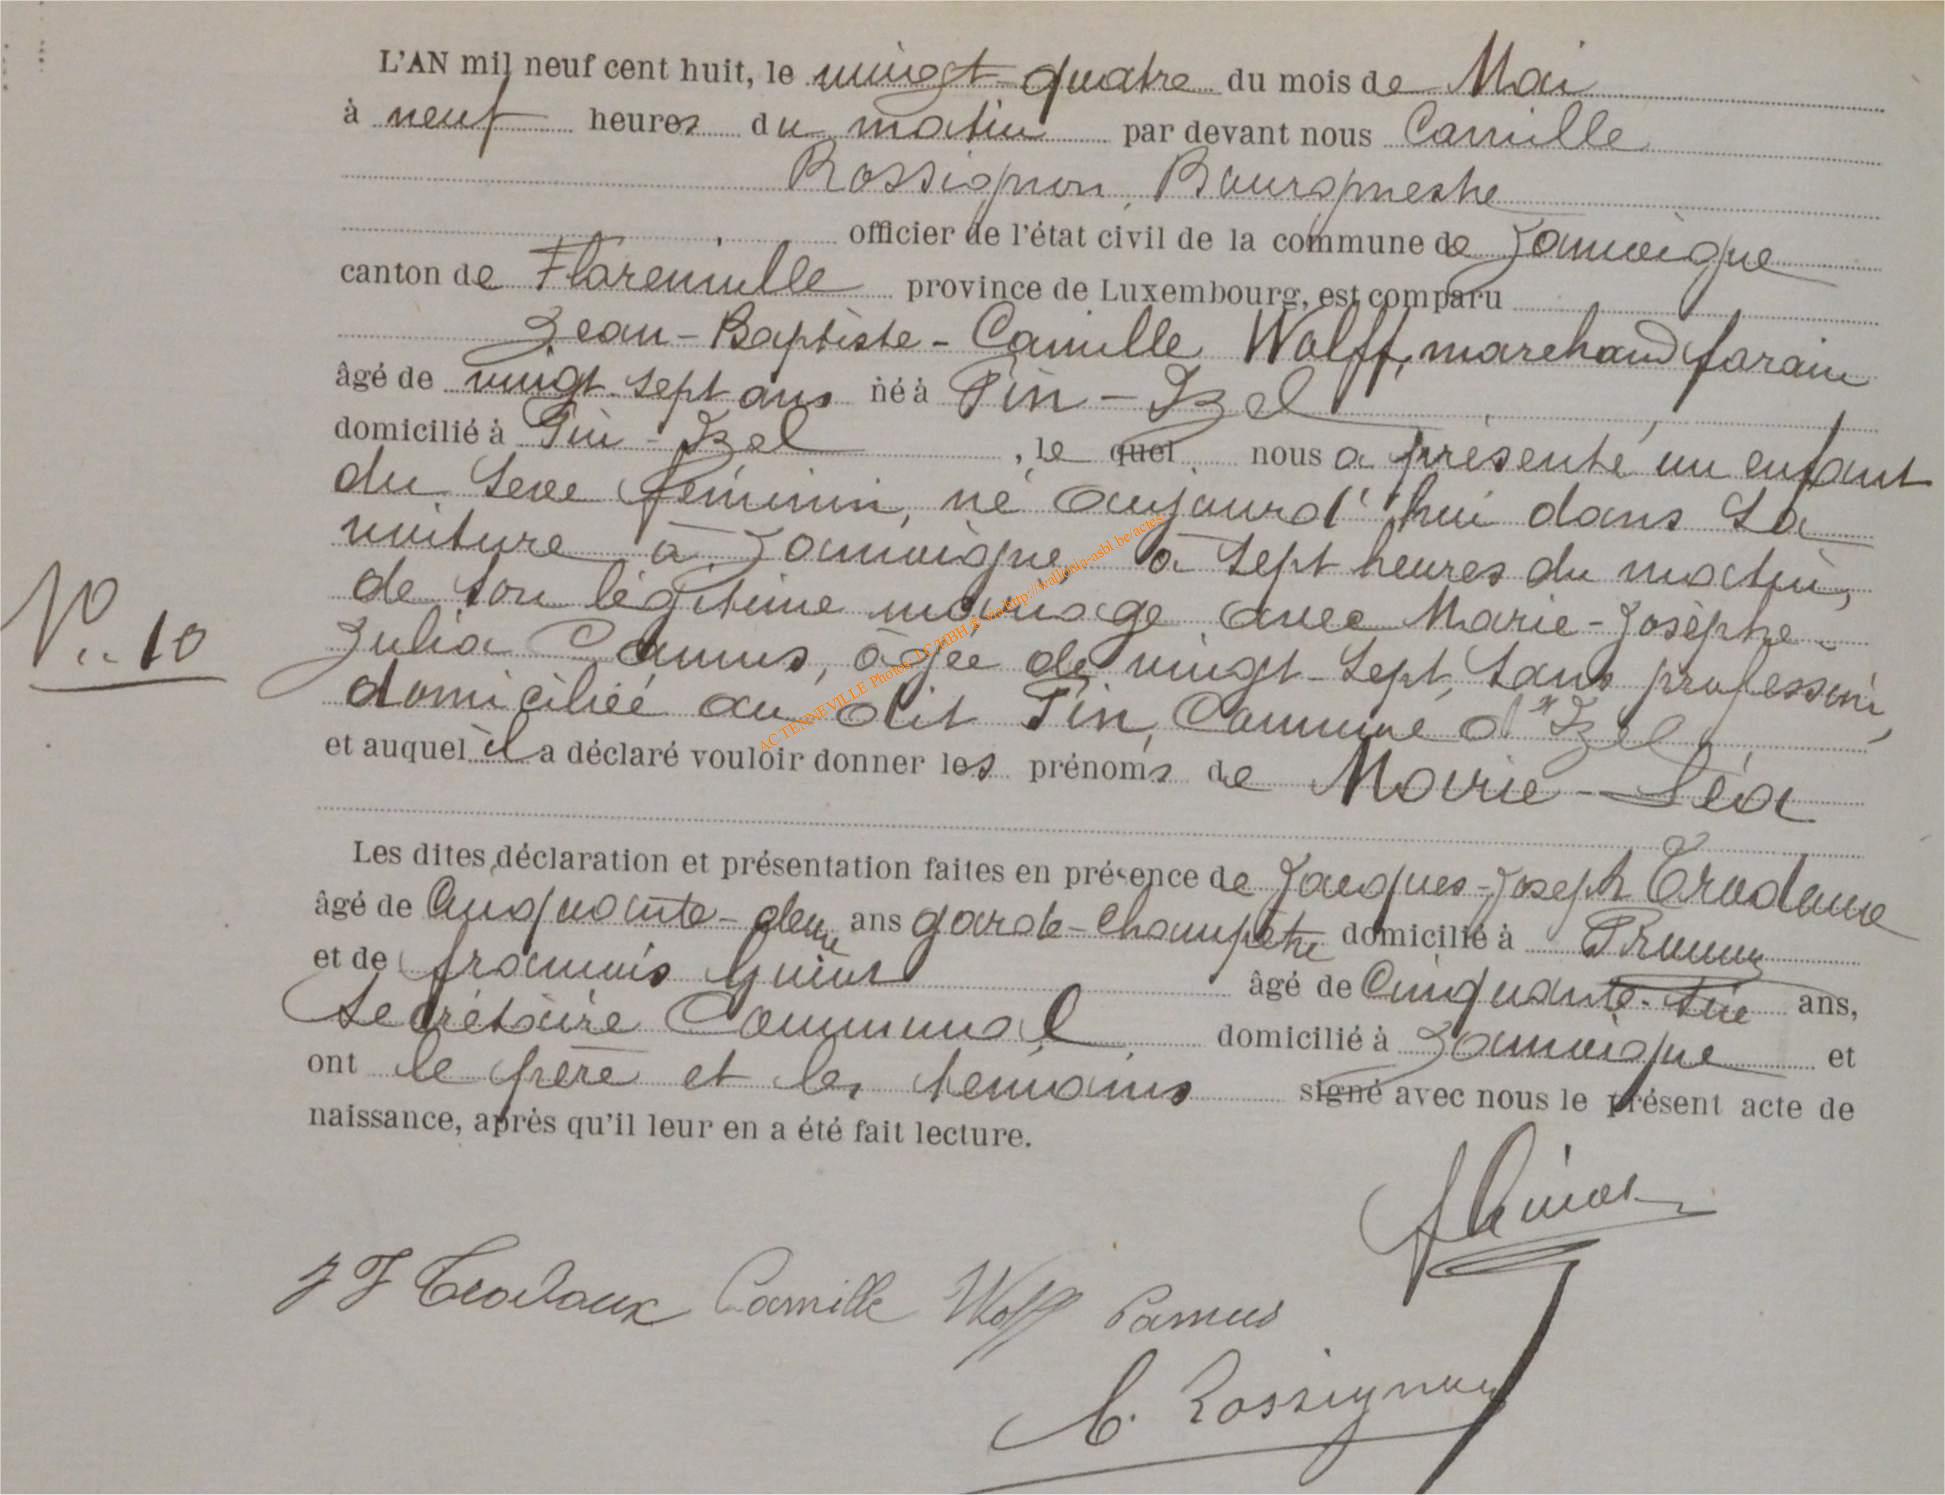 L'AN mil neuf cent huit, le vingt-quatre du mois de Mai
à neuf heures du matin par devant nous Camille
Rossignon, Bourgmestre
officier de l'état civil de la commune de Jamoigne
canton de Florenville province de Luxembourg, est comparu
Jean-Baptiste-Camille Wolff, marchand forain
âgé de vingt-sept ans né à Pin-Izel
domicilié à Pin-Izel, le quel nous a présenté un enfant
du sexe féminin, né aujourd'hui dans sa
voiture à Jamoigne à sept heures du matin,
N° 10
de son légitime mariage avec Marie-Josèphe-
Julia Camus, âgée de vingt-sept, sans profession,
domiciliée au dit Pin, Commune d'Izel
et auquel il a déclaré vouloir donner les prénoms de Marie-Léa
ACTENNEVILLE Photos via http://wallonia-asbl.be/actes
Les dites déclaration et présentation faites en présence de Jacques-Joseph Trodoux
âgé de Cinquante-deux ans garde-Champêtre domicilié à
et de françois âgé de Cinquante-six ans,
Secrétaire Communal domicilié à Jamoigne et
ont le père et les témoins signé avec nous le présent acte de
naissance, après qu'il leur en a été fait lecture.
J J Trodoux Camille Wolff Camus
C. Rossignon